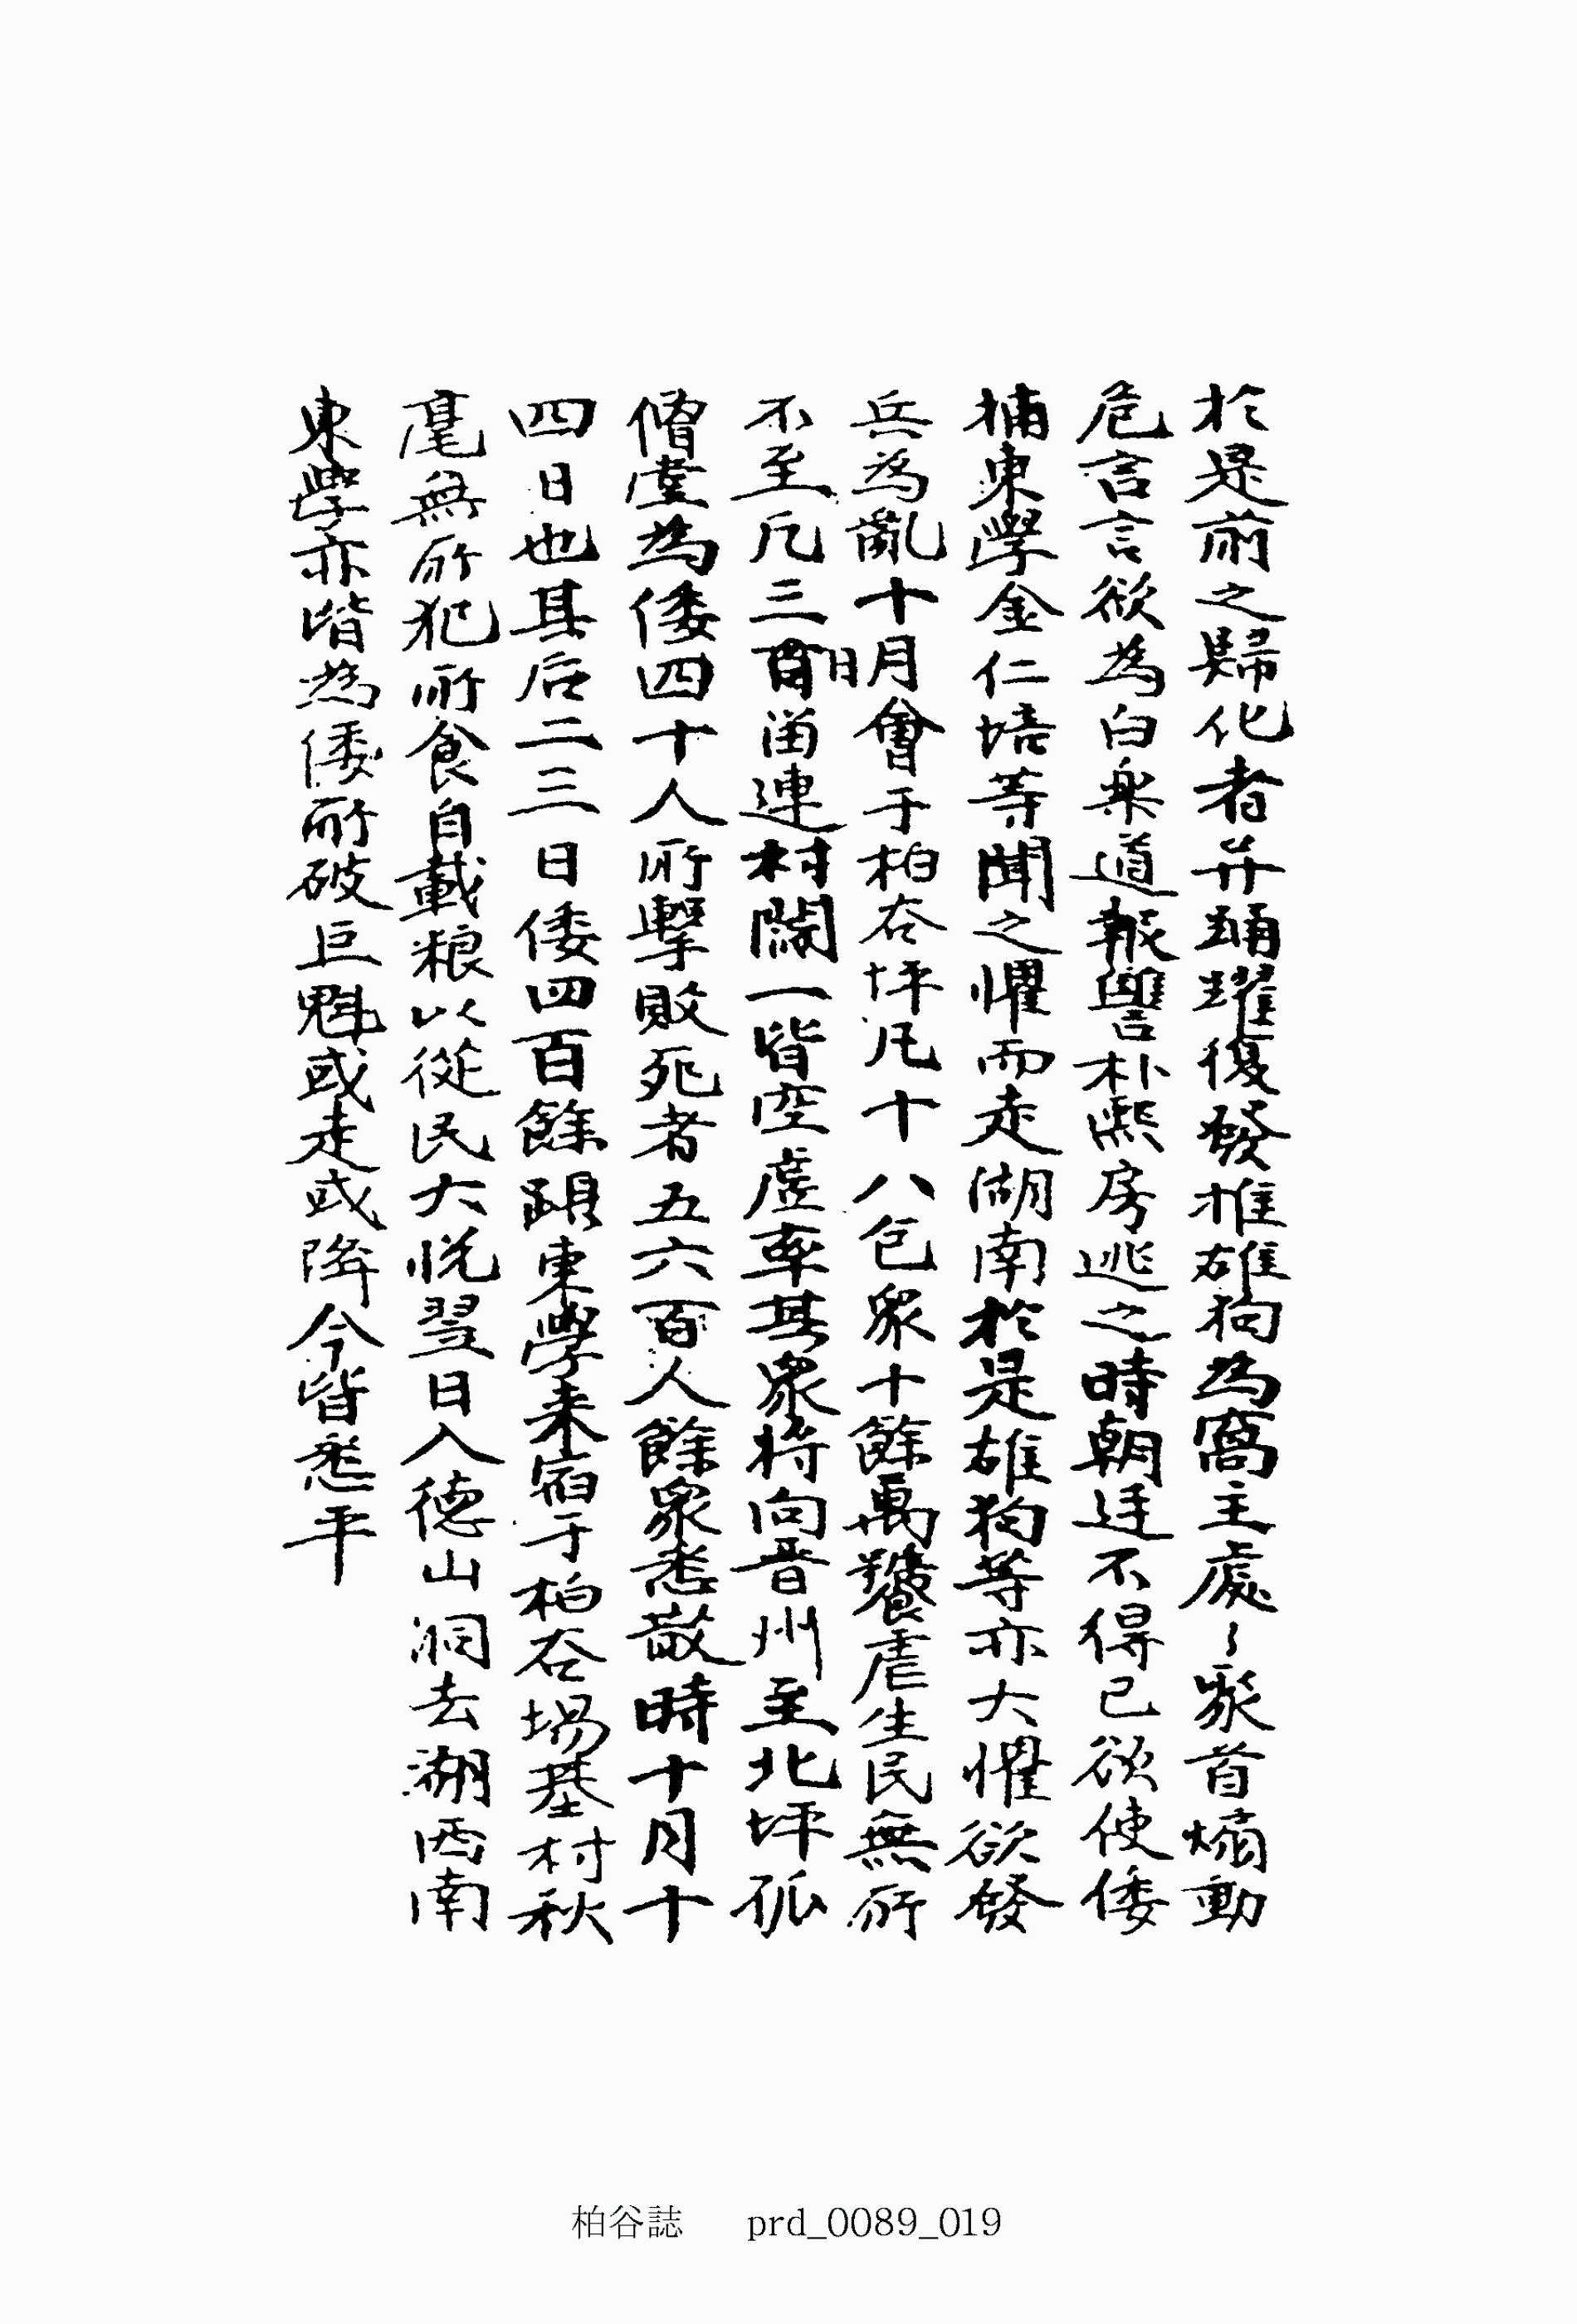 於是前之歸化者幷踊躍復發推雄狗為窩主處〻聚首煽動
危言言欲為白樂道報讐朴熙房逃之時朝廷不得已欲使倭
捕東學金仁培等聞之懼而走湖南於是雄狗等亦大懼欲發
兵為亂十月會于柏谷坪凡十八包衆十餘萬饕虐生民無所
不至凡三日留連村閭一皆空虛率其衆將向晉州至北坪孤
僧堂為倭四十人所擊敗死者五六百人餘衆悉散時十月十
四日也其后二三日倭四百餘跟東學来宿于柏谷場基村秋
毫無所犯所食自載粮以從民大悅翌日入德山洞去湖西南
東學亦皆為倭所破巨魁或走或降今皆悉平
柏谷誌 prd_0089_019